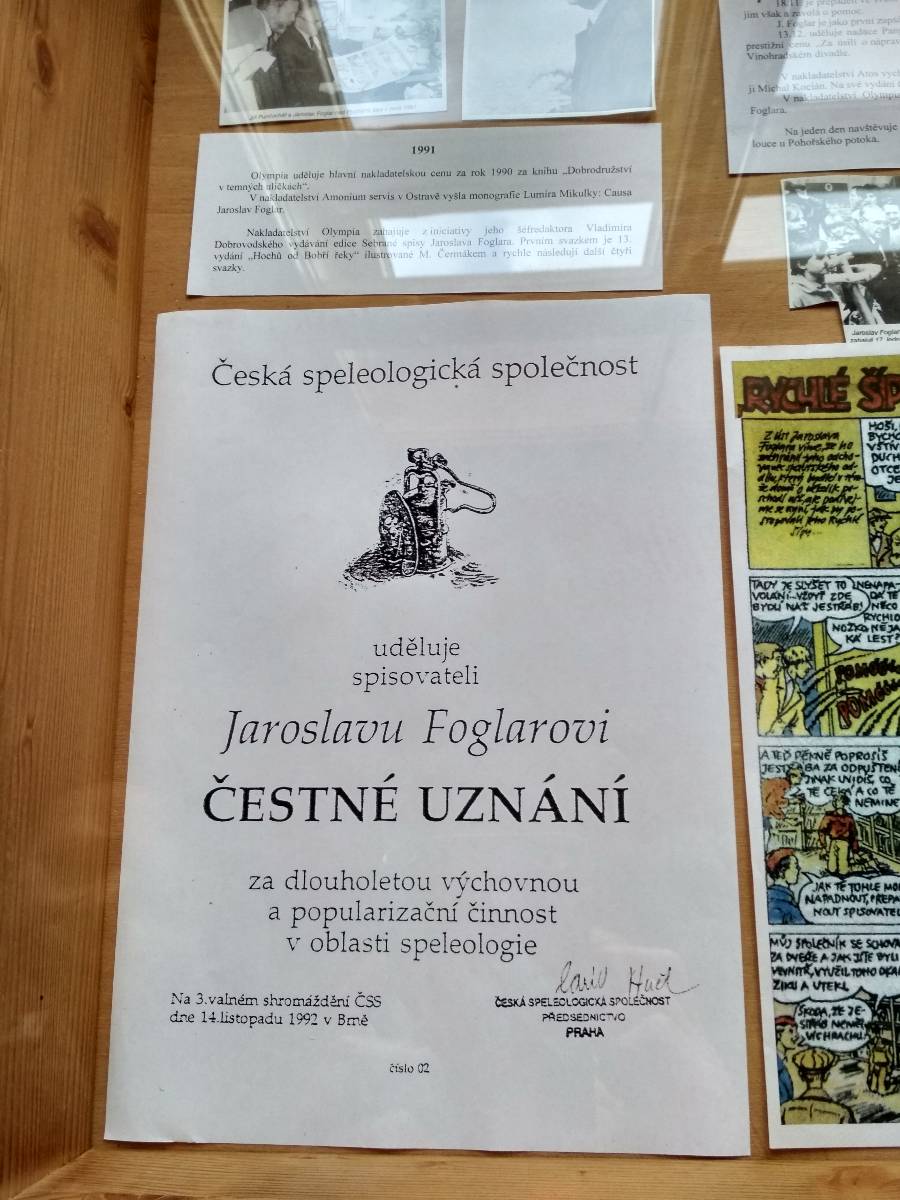 Jiří Purdochář a Jaroslav Foglar
18.11. je přepaden ve
jim však a zavolá o pomoc.
J. Foglar je jako první
13.12. uděluje nadace
prestižní cenu „Za úsilí o nápravu
Vinohradském divadle.
V nakladatelství Atos
ji Michal Kocián. Na své vydání
V nakladatelství Olympia
Foglara.
Na jeden den navštěvuje
louce u Pohořského potoka.
1991
Olympia uděluje hlavní nakladatelskou cenu za rok 1990 za knihu „Dobrodružství
v temných uličkách“.
V nakladatelství Amonium servis v Ostravě vyšla monografie Lumíra Mikulky: Causa
Jaroslav Foglar.
Nakladatelství Olympia zahajuje z iniciativy jeho šéfredaktora Vladimíra
Dobrovodského vydávání edice Sebrané spisy Jaroslava Foglara. Prvním svazkem je 13.
vydání „Hochů od Bobří řeky“ ilustrované M. Čermákem a rychle následují další čtyři
svazky.
Česká speleologická společnost
uděluje
spisovateli
Jaroslavu Foglarovi
ČESTNÉ UZNÁNÍ
za dlouholetou výchovnou
a popularizační činnost
v oblasti speleologie
Na 3.valném shromáždění ČSS
dne 14.listopadu 1992 v Brně
ČESKÁ SPELEOLOGICKÁ SPOLEČNOST
PŘEDSEDNICTVO
PRAHA
číslo 02
Jaroslav Foglar
zahájil 17. ledn
RYCHLÉ ŠÍP
Z úst Jaroslava
Foglara víme, že ho
zachránil jeho odcho-
MOŠI,
BYCHO
VŠTÍV
DUCH
OTCE
JE
TADY JE SLYŠET TO
VOLÁNÍ-VŽDYŤ ZDE
BYDLÍ NÁŠ JESTŘÁB!
NENAPA-
DÁ TĚ
NĚCO
RYCHLO
NOŽKO NĚJA
KÁ LEST?
POMÓÓC
POMÓÓC
A TEĎ PĚKNĚ POPROSÍŠ
JESTŘÁBA ZA ODPUŠTĚN
JINAK UVIDÍŠ, CO
TĚ ČEKÁ A CO TĚ
NEMINE
JAK TĚ TOHLE MO
NAPADNOUT, PŘEPA
NOUT SPISOVATEL
MŮJ SPOLEČNÍK SE SCHOVA
ZA DVEŘE A JAK JSTE BYLI
VEVNITŘ, VYUŽIL TOHO OKA
ŽIKU A UTEKL
ŠKODA, ŽE JE-